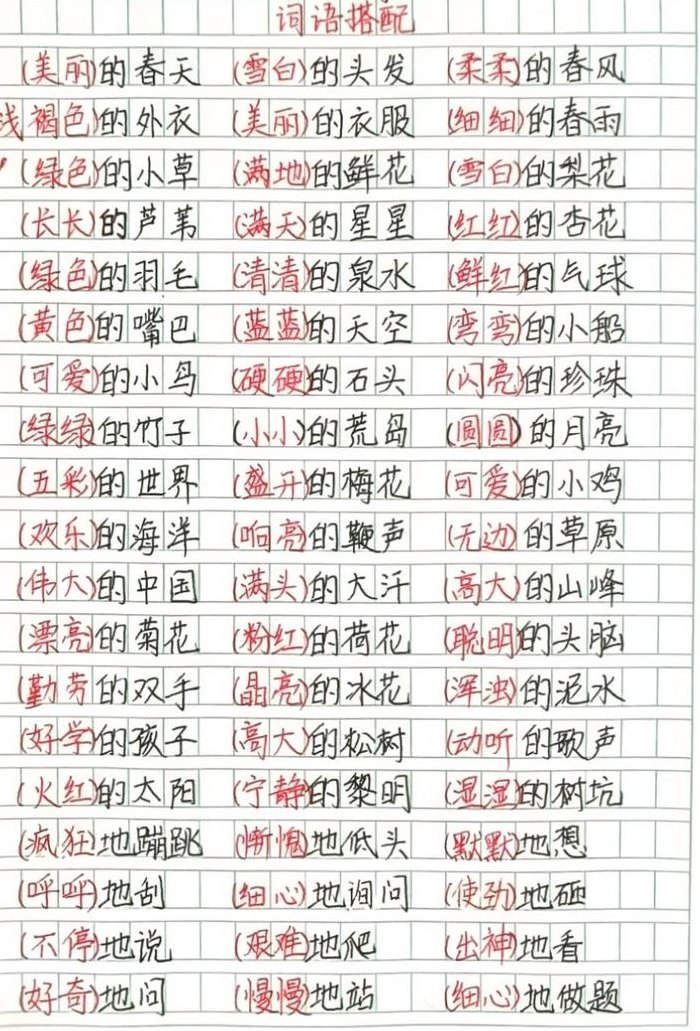 词语搭配
(美丽)的春天 (雪白)的头发 (柔柔)的春风
浅褐色)的外衣 (美丽)的衣服 (细细)的春雨
(绿色)的小草 (满地)的鲜花 (雪白)的梨花
(长长)的芦苇 (满天)的星星 (红红)的杏花
(绿色)的羽毛 (清清)的泉水 (鲜红)的气球
(黄色)的嘴巴 (蓝蓝)的天空 (弯弯)的小船
(可爱)的小鸟 (硬硬)的石头 (闪亮)的珍珠
(绿绿)的竹子 (小小)的荒岛 (圆圆)的月亮
(五彩)的世界 (盛开)的梅花 (可爱)的小鸡
(欢乐)的海洋 (响亮)的鞭声 (无边)的草原
(伟大)的中国 (满头)的大汗 (高大)的山峰
(漂亮)的菊花 (粉红)的荷花 (聪明)的头脑
(勤劳的双手 (晶亮)的冰花 (浑浊)的泥水
(好学)的孩子 (高大)的松树 (动听 的歌声
(火红)的太阳 (宁静)的黎明 (湿湿)的树坑
(疯狂)地蹦跳 (惭愧)地低头 (默默)地想
(呼呼)地刮 (细心)地询问 (使劲)地砸
(不停)地说 (艰难)地爬 (出神)地看
(好奇)地问 (慢慢)地站 (细心)地做题